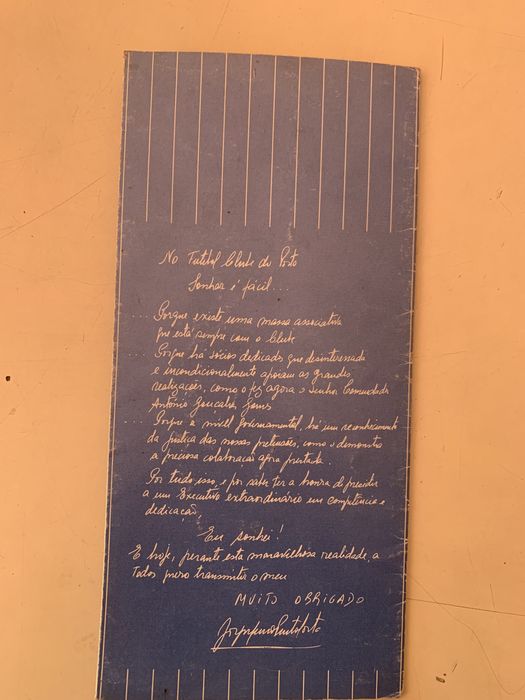 No Futebol Clube do Porto
Sonhar é fácil...
... Porque existe uma massa associativa
que está sempre com o Clube
... Porque há sócios dedicados que desinteressada
e incondicionalmente apoiam as grandes
realizações, como o fez agora o Senhor Comendador
António Gonçalves Gomes
... Porque a nível governamental, há um reconhecimento
da justiça das nossas pretensões, como o demonstra
a preciosa colaboração agora prestada.
Por tudo isso, e por saber ter a honra de presidir
a um Executivo extraordinário em competência e
dedicação,
Eu sonhei!
E hoje, perante esta maravilhosa realidade, a
Todos quero transmitir o meu
MUITO OBRIGADO